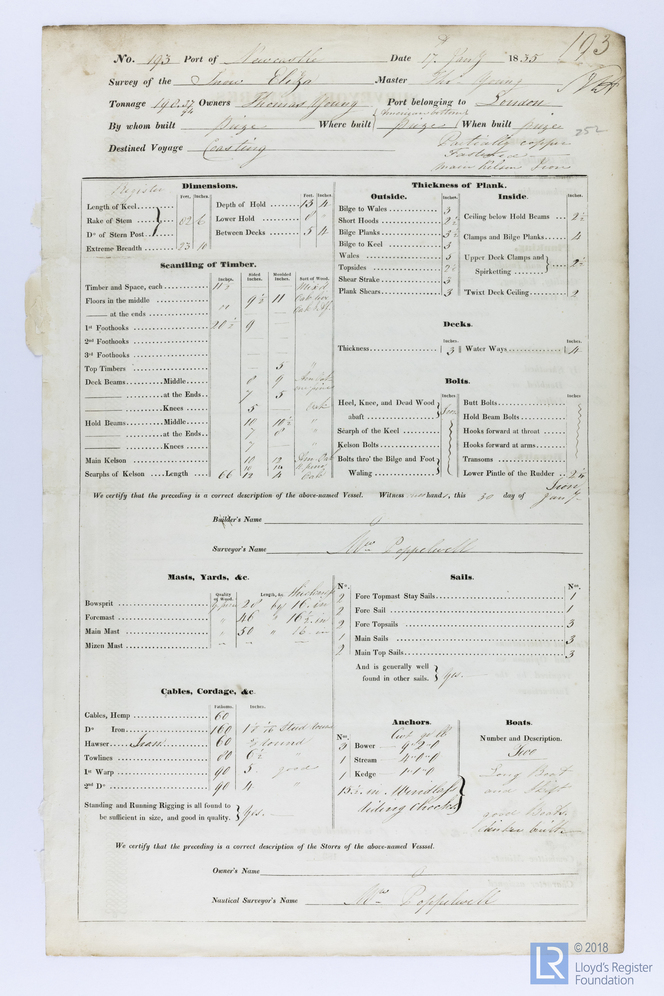 193
No. 193 Port of Newcastle Date 17 Jany 1835
Survey of the Snow Eliza Master Thos Young
Tonnage 190 37/94 Owners Thomas Young Port belonging to London
By whom built prize Where built prize When built prize
252
Destined Voyage Coasting Partially copper
Fastened
main kelson Iron
Register
Dimensions.
Feet. Inches
Length of Keel
Rake of Stem
Do of Stern Post
82 6
Extreme Breadth 23 10
Feet. Inches
Depth of Hold 13 4
Lower Hold 8 "
Between Decks 5 4
Thickness of Plank.
Outside.
Inches.
Bilge to Wales 3
Short Hoods 2½
Bilge Planks 3½
Bilge to Keel 3
Wales 5
Topsides 2½
Shear Strake 3
Plank Shears 3
Inside.
Inches.
Ceiling below Hold Beams 2½
Clamps and Bilge Planks 4
Upper Deck Clamps and
Spirketting 2½
'Twixt Deck Ceiling 2
Scantling of Timber.
Inches. Sided Inches. Moulded Inches. Sort of Wood.
Timber and Space, each
Floors in the middle 9½ 11
at the ends
1st Foothooks 20½ 9
2nd Foothooks
3rd Foothooks
Top Timbers 5 "
Deck Beams Middle 8 9
at the Ends 7 5
Knees 5 Oak
Hold Beams Middle 10 10½ "
at the Ends 7 8 "
Knees 7 "
Main Kelson 10 12
Scarphs of Kelson Length 66 12 4 Oak
Decks.
Inches. Inches.
Thickness 3 Water Ways 4
Bolts.
Inches Inches
Heel, Knee, and Dead Wood
abaft Iron
Scarph of the Keel
Kelson Bolts
Bolts thro' the Bilge and Foot
Waling
Butt Bolts
Hold Beam Bolts
Hooks forward at throat
Hooks forward at arms
Transoms
Lower Pintle of the Rudder 2¼
Iron
We certify that the preceding is a correct description of the above-named Vessel. Witness our hands, this 30 day of Jany
Builder's Name
Surveyor's Name Wm Poppelwell
Masts, Yards, &c.
Quality of Wood. Length, &c. Thickness
Bowsprit 28 by 16 in
Foremast " 46 " 16½ in
Main Mast " 50 " 16 in
Mizen Mast
Sails.
No. Nos.
2 Fore Topmast Stay Sails 1
2 Fore Sail 1
2 Fore Topsails 3
1 Main Sails 3
2 Main Top Sails 3
And is generally well
found in other sails. yes.
Cables, Cordage, &c
Fathoms. Inches.
Cables, Hemp 60
Do Iron 160
Hawser Iron 60
Towlines 80 6½ "
1st Warp 90 5 good
2nd Do 90 4 "
Standing and Running Rigging is all found to
be sufficient in size, and good in quality. yes.
Anchors.
No. Cwt qr lb
3 Bower 9-2-0
1 Stream 4-0-0
1 Kedge 1-1-0
Windlass
riding Chocks
Boats.
Number and Description.
Two
Long Boat
and Skiff
good Boats
clinker built
We certify that the preceding is a correct description of the Stores of the above-named Vesssel.
Owner's Name
Nautical Surveyor's Name Wm Poppelwell
LR © 2018
Lloyd's Register
Foundation